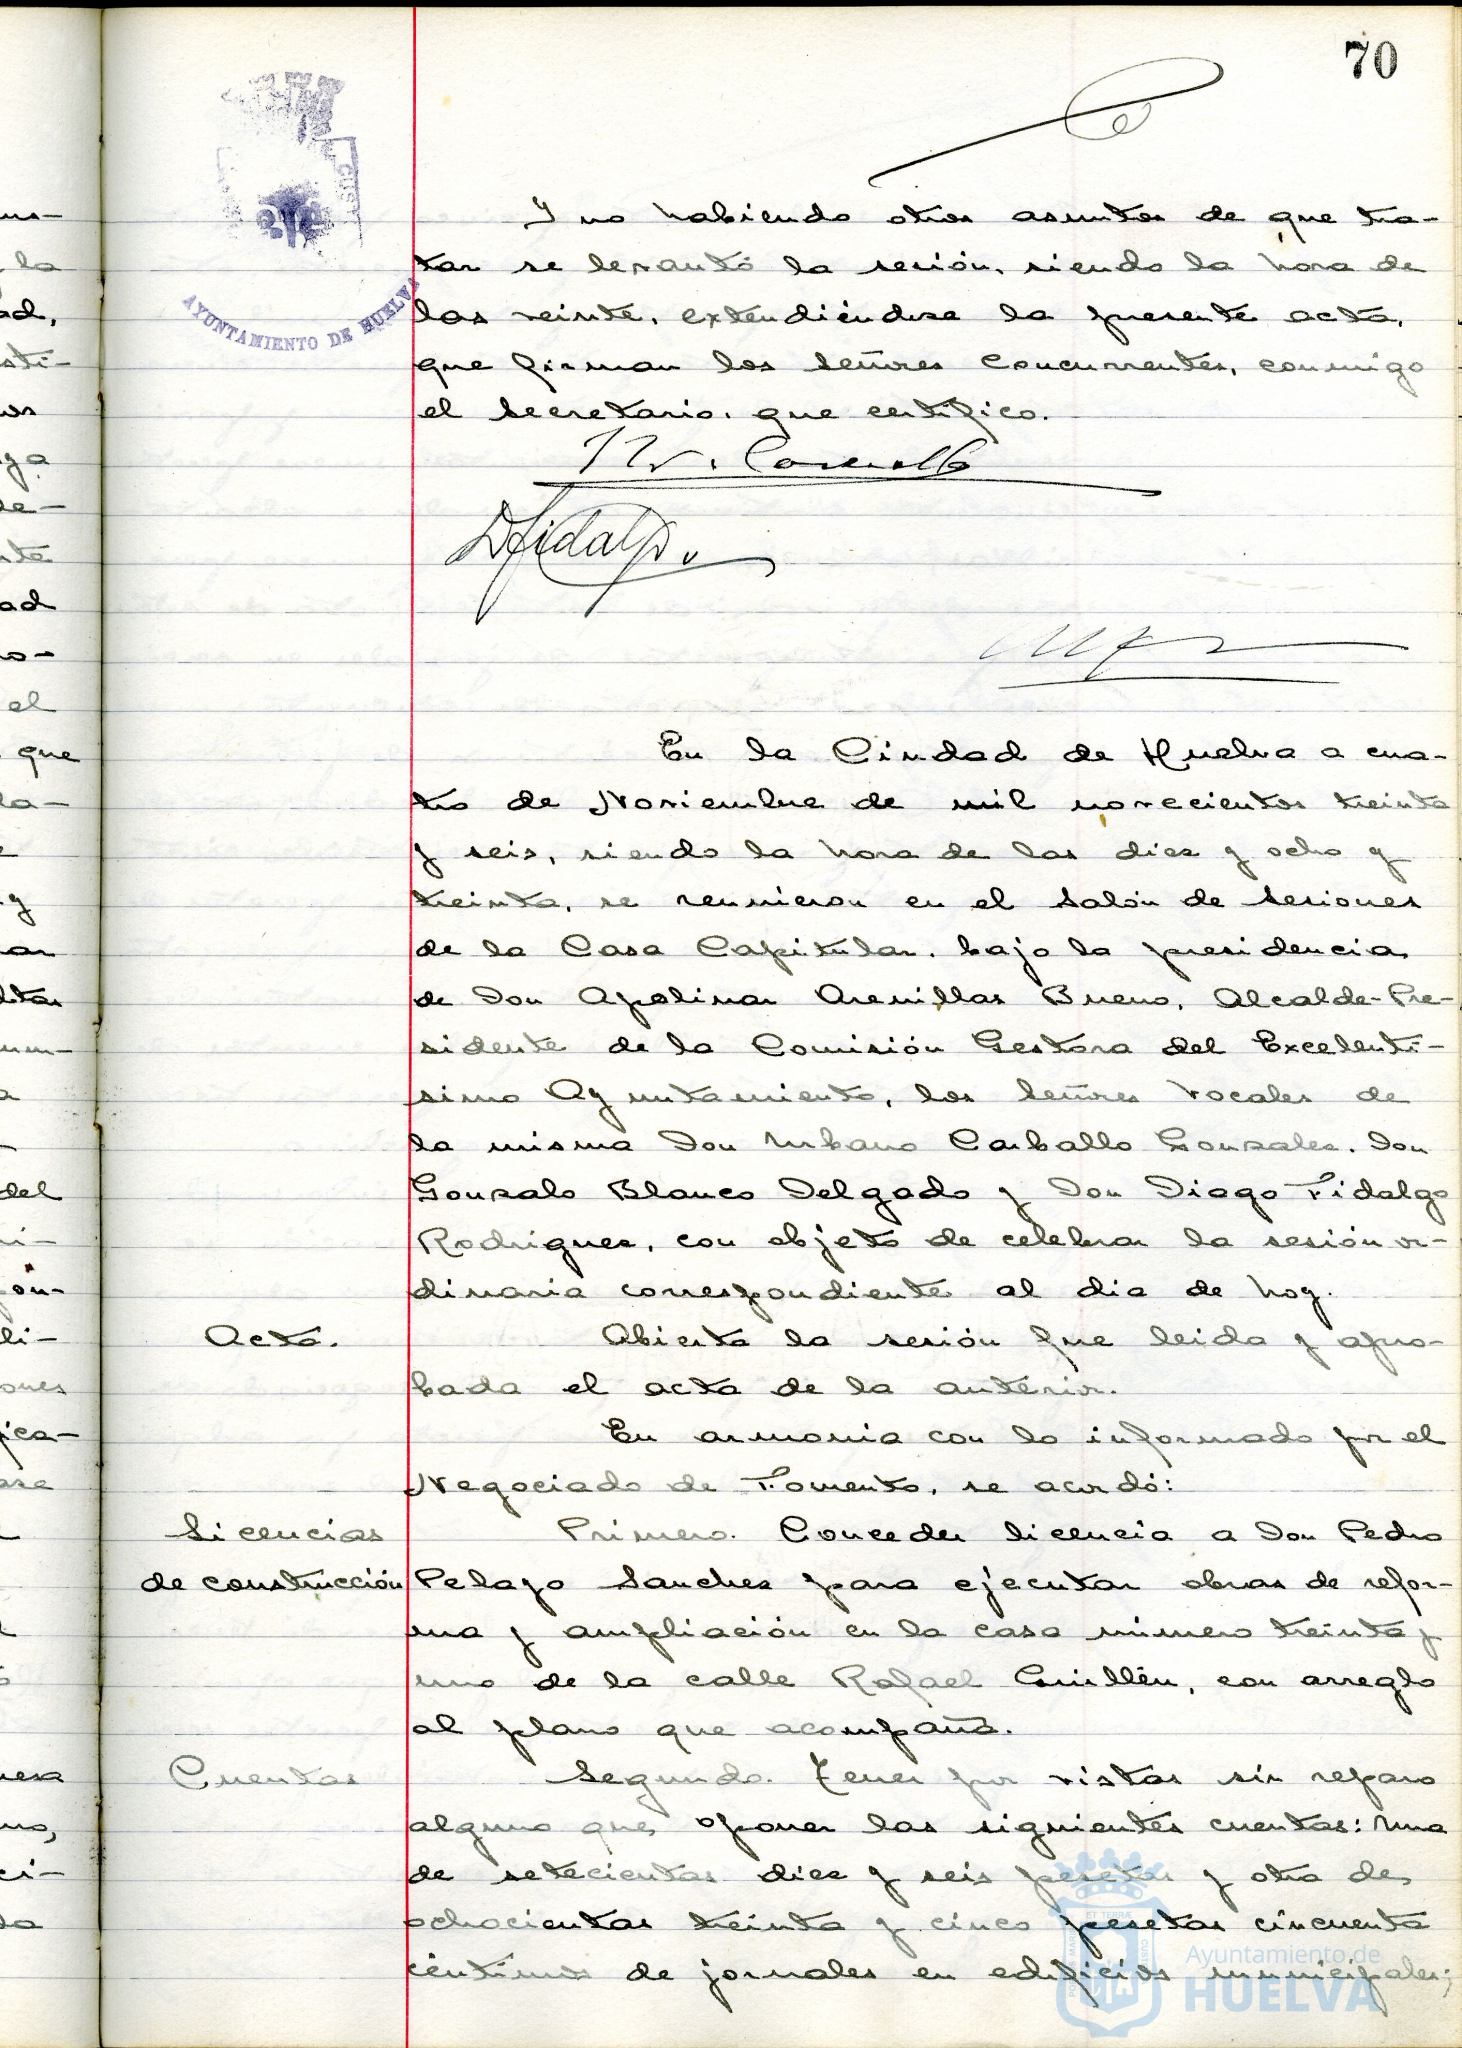 70
AYUNTAMIENTO DE HUELVA
Y no habiendo otros asuntos de que tra-
tar se levantó la sesión, siendo la hora de
las veinte, extendiéndose la presente acta,
que firman los Señores Concurrentes, conmigo
el Secretario, que certifico.
Carballo
D Fidalgo
En la Ciudad de Huelva a cua-
tro de Noviembre de mil novecientos treinta
y seis, siendo la hora de las diez y ocho y
treinta, se reunieron en el Salón de Sesiones
de la Casa Capitular, bajo la presidencia
de Don Apolinar Arenillas Bueno, Alcalde-Pre-
sidente de la Comisión Gestora del Excelentí-
simo Ayuntamiento, los Señores Vocales de
la misma Don Urbano Carballo Gonzalez, Don
Gonzalo Blanco Delgado y Don Diego Fidalgo
Rodriguez, con objeto de celebrar la sesión or-
dinaria correspondiente al dia de hoy.
Acta.
Abierta la sesión fue leida y apro-
bada el acta de la anterior.
En armonia con lo informado por el
Negociado de Fomento, se acordó:
Licencias
de construcción
Primero. Conceder licencia a Don Pedro
Pelayo Sanchez para ejecutar obras de refor-
ma y ampliación en la casa número treinta y
uno de la calle Rafael Guillén, con arreglo
al plano que acompaña.
Cuentas
Segundo. Tener por vistas sin reparo
alguno que oponer las siguientes cuentas: una
de setecientas diez y seis pesetas y otra de
ochocientas treinta y cinco pesetas cincuenta
céntimos de jornales en edificios municipales;
Ayuntamiento de
HUELVA